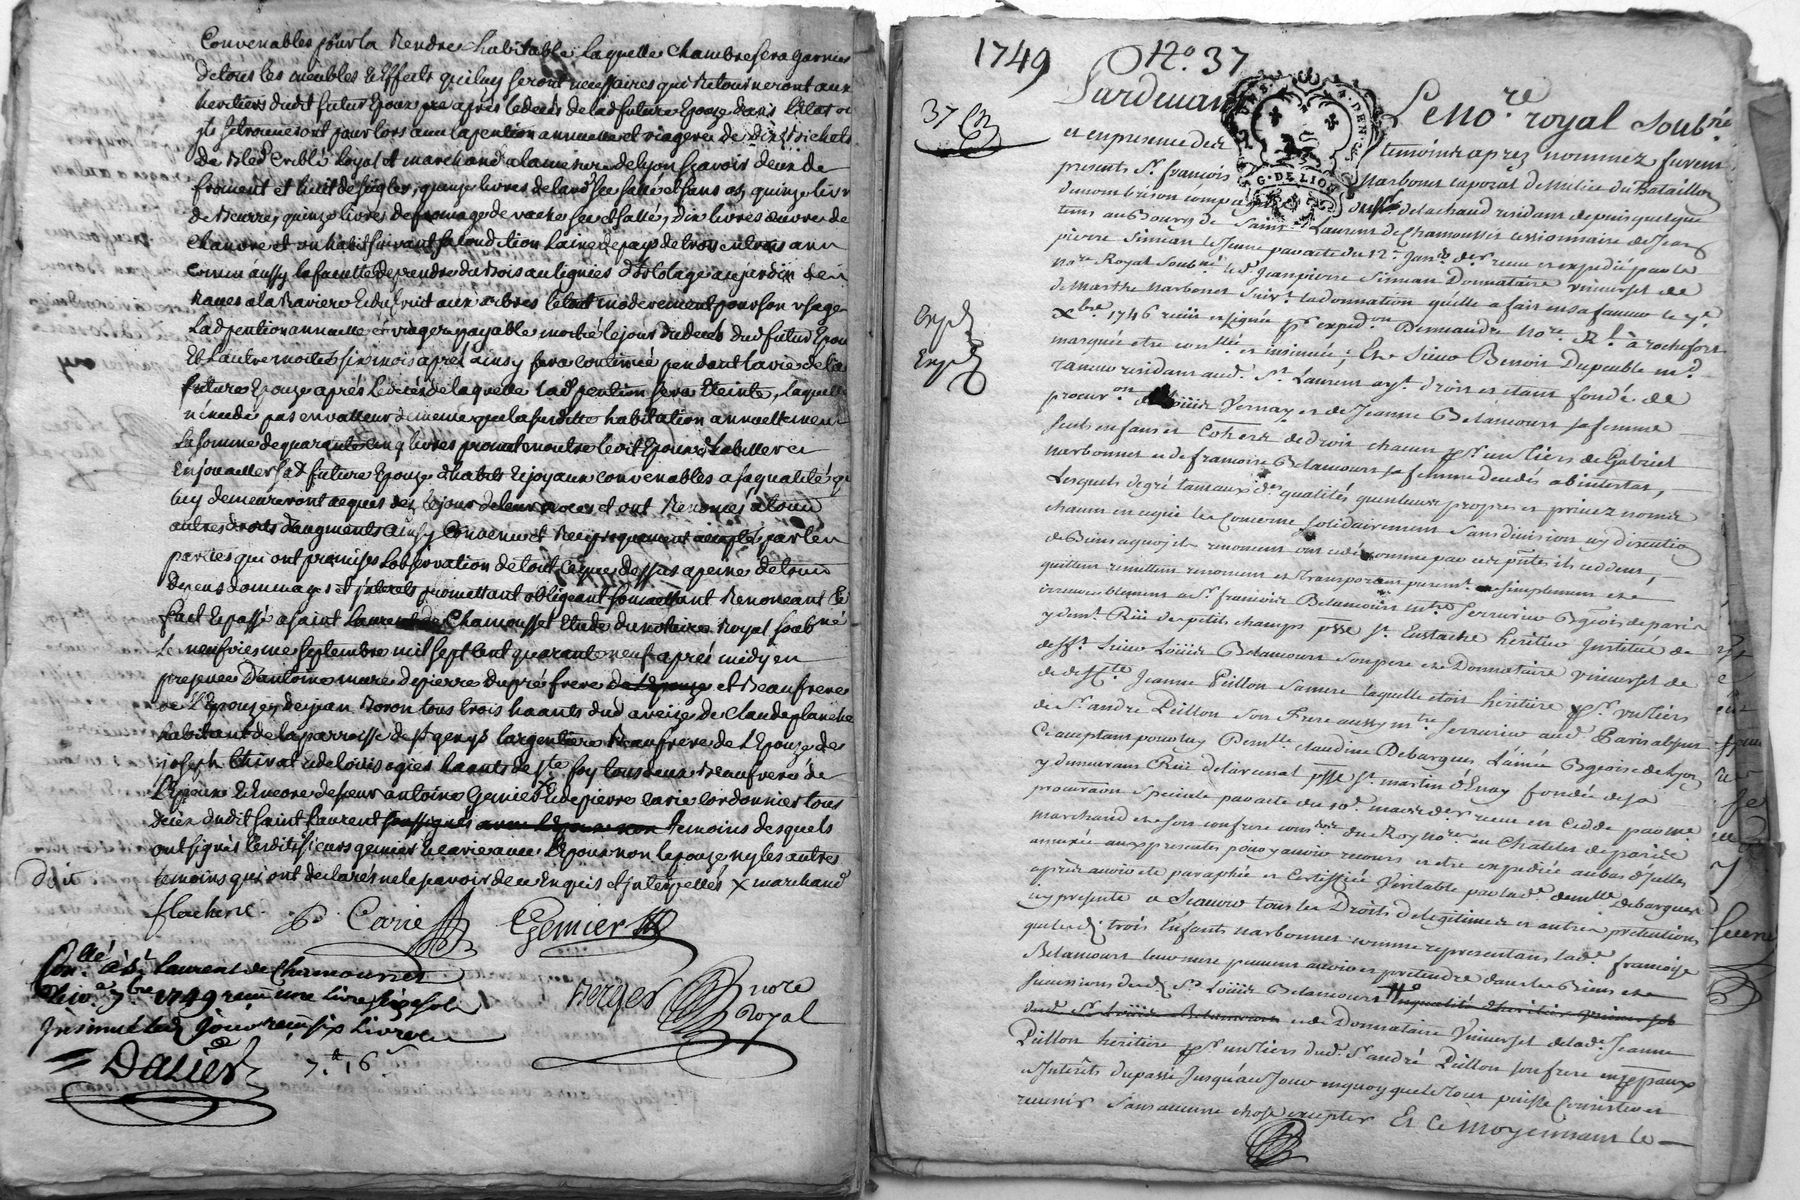 Convenables pour la Rendre habitable laquelle chambre sera garnies
de tous les meubles & Effects qui luy seront necessaires qui Retourneront aux
heritiers dudit futur Epoux après le decés de lad future Epouze dans l'Etat ou
ils se trouveront pour lors a une pention annuelle et viagere de dix Bichets
de Bled Criblé loyal et marchand a la mesure de Lyon sçavoir deux de
froment et huit de seigle, quinze livres de lard sec sallé et sans os, quinze livr
de Beurre, quinze livres de fromage de vache sec et sallé, dix livres œuvre de
chanvre et un habit suivant sa condition laine de pays de trois en trois ans
comme aussy la faculté de prendre du Bois au lignier d'hortolage au jardin des
Raves a la Raviere & du fruit aux arbres le tout moderement pour son usage
Ladpention annuelle et viagere payable moitié le jour du decés dud futur Epoux
Et l'autre moitié six mois aprés ainsy sera continué pendant la vie de la
future Epouze aprés le décés de laquelle lad pention sera Eteinte, laquelle
n'excede pas en valleur de meme que la susditte habitation annuellement
la somme de quarante cinq livres promet en outre ledit Epoux d'habiller et
Enjouailler lad future Epouze d'habits & joyaux convenables a sa qualité qui
luy demeureront acquis des le jour de leur noces et ont Renoncés a tous
autres droits d'augments ainsy Convenu et Reciproquement accepté par les
parties qui ont promises l'observation de tout ce que dessus a peine de tous
Depens dommages et jnterets promettant obligeant soumettant Renonceant &c
fait & passé a saint Laurent de Chamousset Etude du notaire Royal soubné
Le neufviesme septembre mil sept cent quarante neuf aprés midy en
presence d'antoine mure de pierre dupré frere de l'Epouze et Beaufrere
de l'Epouze, de jean Boron tous trois haants dud aveize de Claude planche
habitant de la parroisse de st genys largentiere Beaufrere de l'Epouze de
joseph Chirat & de louis ogies haants de ste foy tous deux Beaufrere de
l'Epouze & Encore de sieur antoine Genier X & de pierre Carie Cordonnier tous
deux dudit saint Laurent temoins desquels
ont signés lesdits sieurs genier & carie avec l'Epoux non l'epouze ny les autres
temoins qui ont declarés ne le sçavoir de ce Enquis et jnterpellés X marchand
flachere. P. Carie Genier
Conllé à St Laurent de Chamousset
le 7bre 1749 reçu une livre
Insinué led jour reçu six livres
Berger nore
Royal
Dalier
7 # 16 s
1749 No. 37
37
Pardevant Le Nore royal soubné
et en presence des temoins aprez nommez furent
presents Sr. francois Narbonet caporal de Milice du Bataillon
de montbrison compagnie de lachaud residant depuis quelque
tems au Bourg de Saint Laurent de Chamousset cessionnaire de Jean
pierre Simean le Jeune par acte du 12e Janv. der receu et expedié par le
nore Royal soubné led Jean pierre Simean Donnataire universel de
de Marthe Narbonet suivt. la donnation quelle a fait en sa faveur le 7e
xbre. 1746 recüe et signée pr expedon Dernandre nore. Rl. à rochefort
marquée etre conllé et insinuée; Et Sieur Benoit Dupeuble md.
tanneur residant aud. St. Laurent ayt. droit et etant fondé de
procuron de Louis Vernay et de Jeanne Betancourt sa femme
seuls enfans et cohers. de droit chacun pr. un tiers de Gabriel
Narbonnet et de francoise Betancourt sa femme decedés abintestat,
Lesquels de gré tant aux ds. qualités qu'en leurs propres et privez noms
chacun en ce qui les concerne solidairement sans division ny discution
de Biens a quoy ils renoncent ont cedé comme par ces pntes ils cedent,
quittent remettent renoncent et transportent purement et simplement et
irrevocablement a Sr. francois Betancourt mtre Serrurier Bgeois de paris
y demt. Rüe des petits champs psse St. Eustache heritier Institué de
deffst. Sieur Loüis Betancourt son pere et Donnataire universel de
de deffte Jeanne Püllon sa mere laquelle etoit heritiere pr. un tiers
de Sr. andré Püllon son Frere aussy mtre Serrurier aud. Paris absent
Ce acceptant pour luy Demlle. claudine Debargues L'ainée Bgeoise de lyon
y demeurant Rüe de larcenal psse St. martin d'Ainay fondée de sa
procuration speciale par acte du 10e. mars der. receu en Cedde par me
marchand et son confrere consrs. du Roy nores au Chatelet de paris
annexée aux presentes pour y avoir recours et etre expediée au bas d'icelles
aprez avoir eté paraphée et certiffiée veritable par lad. demlle. Debargues
icy presente a Scavoir tous les Droits de legitime et autres pretentions
que les d. trois Enfants narbonnet comme representans lad. francoise
Betancourt leur mere peuvent avoir et pretendre dans les Biens et
successions dud. Sr. Loüis Betancourt
et de Donnataire Universel de lad. Jeanne
Püllon heritiere pr. un tiers dud. Sr. andré Püllon son frere en ppaux
et Interets du passé jusqu'au Jour en quoy que le tout puisse consister et
revenir sans aucune chose excepter Et ce Moyennant le
G. DE LION